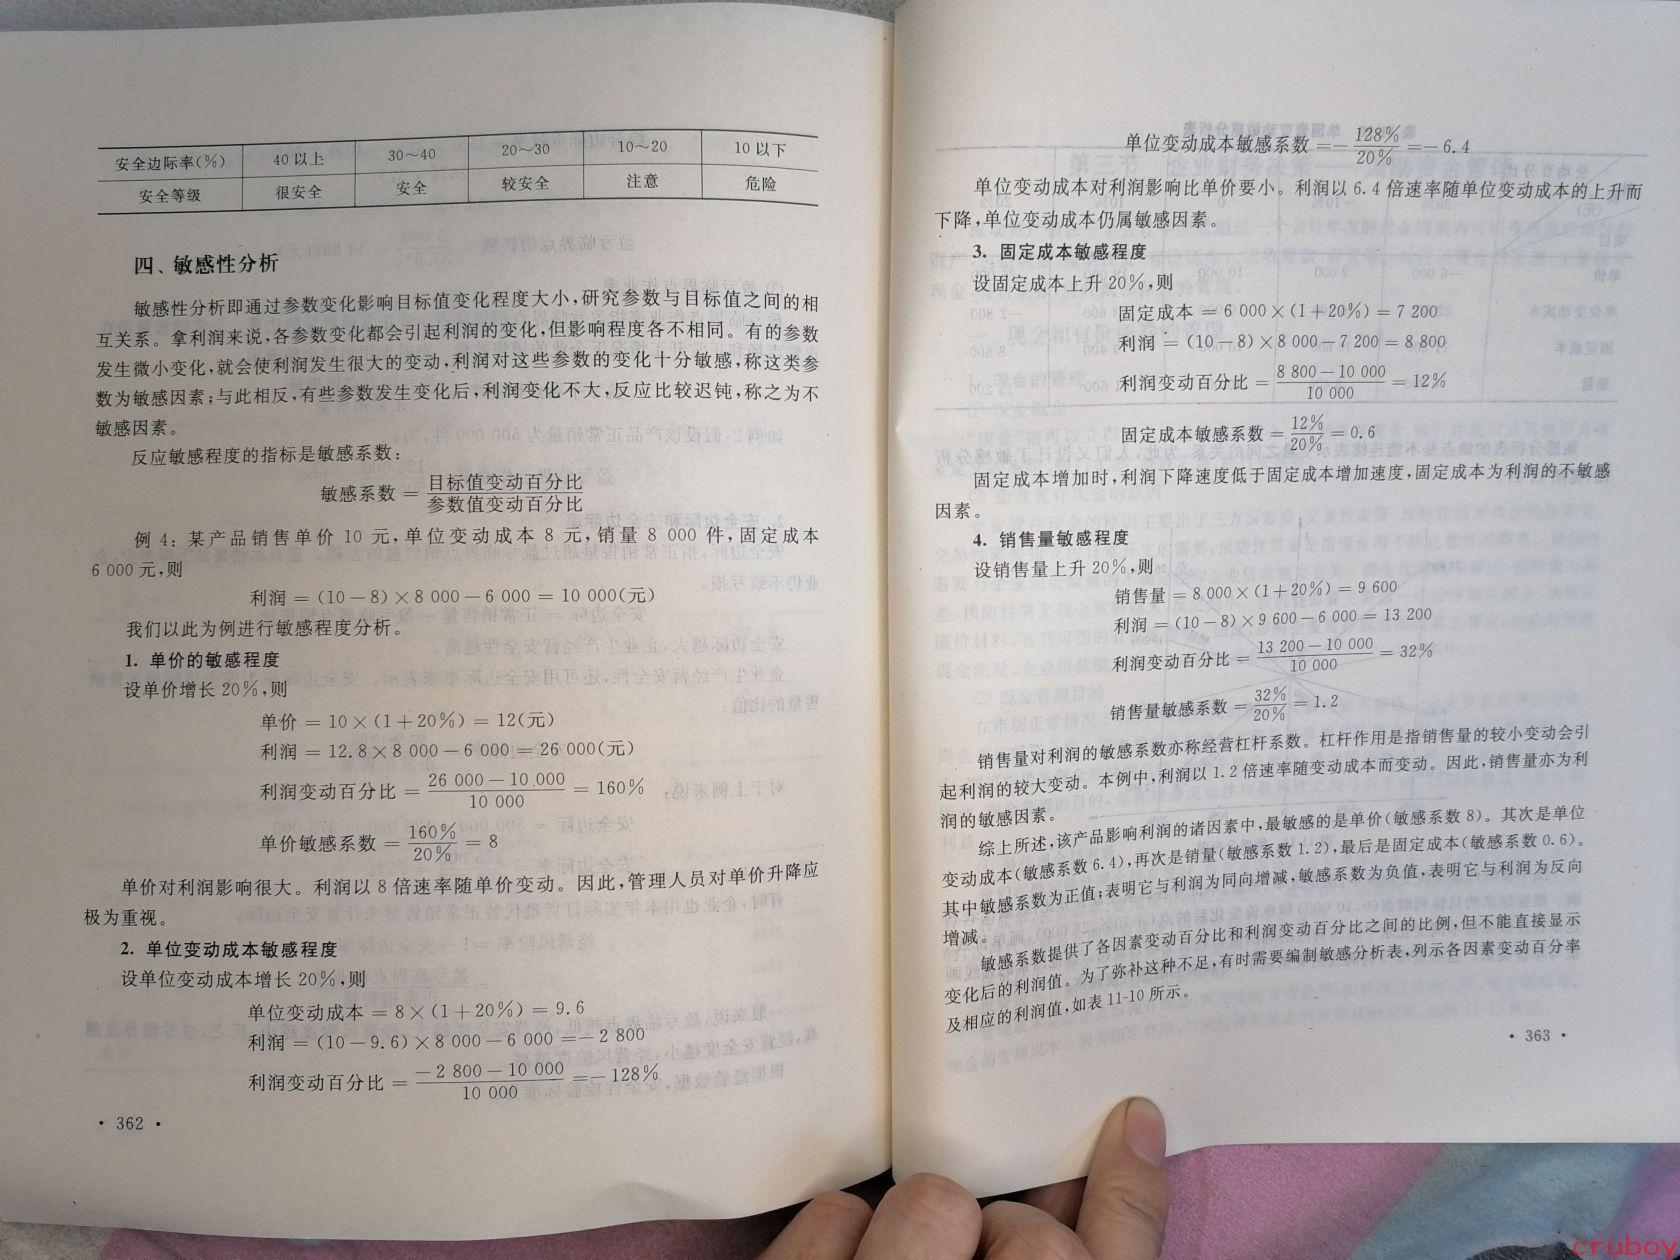 安全边际率(%) 40以上 30～40 20～30 10～20 10以下
安全等级 很安全 安全 较安全 注意 危险
四、敏感性分析
敏感性分析即通过参数变化影响目标值变化程度大小,研究参数与目标值之间的相
互关系。拿利润来说,各参数变化都会引起利润的变化,但影响程度各不相同。有的参数
发生微小变化,就会使利润发生很大的变动,利润对这些参数的变化十分敏感,称这类参
数为敏感因素;与此相反,有些参数发生变化后,利润变化不大,反应比较迟钝,称之为不
敏感因素。
反应敏感程度的指标是敏感系数:
敏感系数 = 目标值变动百分比/参数值变动百分比
例 4: 某产品销售单价 10 元,单位变动成本 8 元,销量 8 000 件,固定成本
6 000 元,则
利润 = (10－8)×8 000－6 000 = 10 000(元)
我们以此为例进行敏感程度分析。
1. 单价的敏感程度
设单价增长 20%,则
单价 = 10×(1＋20%) = 12(元)
利润 = 12.8×8 000－6 000 = 26 000(元)
利润变动百分比 = (26 000－10 000)/10 000 = 160%
单价敏感系数 = 160%/20% = 8
单价对利润影响很大。利润以 8 倍速率随单价变动。因此,管理人员对单价升降应
极为重视。
2. 单位变动成本敏感程度
设单位变动成本增长 20%,则
单位变动成本 = 8×(1＋20%) = 9.6
利润 = (10－9.6)×8 000－6 000 =－2 800
利润变动百分比 = (－2 800－10 000)/10 000 =－128%
· 362 ·
单位变动成本敏感系数 =－128%/20% =－6.4
单位变动成本对利润影响比单价要小。利润以 6.4 倍速率随单位变动成本的上升而
下降,单位变动成本仍属敏感因素。
3. 固定成本敏感程度
设固定成本上升 20%,则
固定成本 = 6 000×(1＋20%) = 7 200
利润 = (10－8)×8 000－7 200 = 8 800
利润变动百分比 = (8 800－10 000)/10 000 = 12%
固定成本敏感系数 = 12%/20% = 0.6
固定成本增加时,利润下降速度低于固定成本增加速度,固定成本为利润的不敏感
因素。
4. 销售量敏感程度
设销售量上升 20%,则
销售量 = 8 000×(1＋20%) = 9 600
利润 = (10－8)×9 600－6 000 = 13 200
利润变动百分比 = (13 200－10 000)/10 000 = 32%
销售量敏感系数 = 32%/20% = 1.2
销售量对利润的敏感系数亦称经营杠杆系数。杠杆作用是指销售量的较小变动会引
起利润的较大变动。本例中,利润以 1.2 倍速率随变动成本而变动。因此,销售量亦为利
润的敏感因素。
综上所述,该产品影响利润的诸因素中,最敏感的是单价(敏感系数 8)。其次是单位
变动成本(敏感系数 6.4),再次是销量(敏感系数 1.2),最后是固定成本(敏感系数 0.6)。
其中敏感系数为正值;表明它与利润为同向增减,敏感系数为负值,表明它与利润为反向
增减。
敏感系数提供了各因素变动百分比和利润变动百分比之间的比例,但不能直接显示
变化后的利润值。为了弥补这种不足,有时需要编制敏感分析表,列示各因素变动百分率
及相应的利润值,如表 11-10 所示。
· 363 ·
cruboy